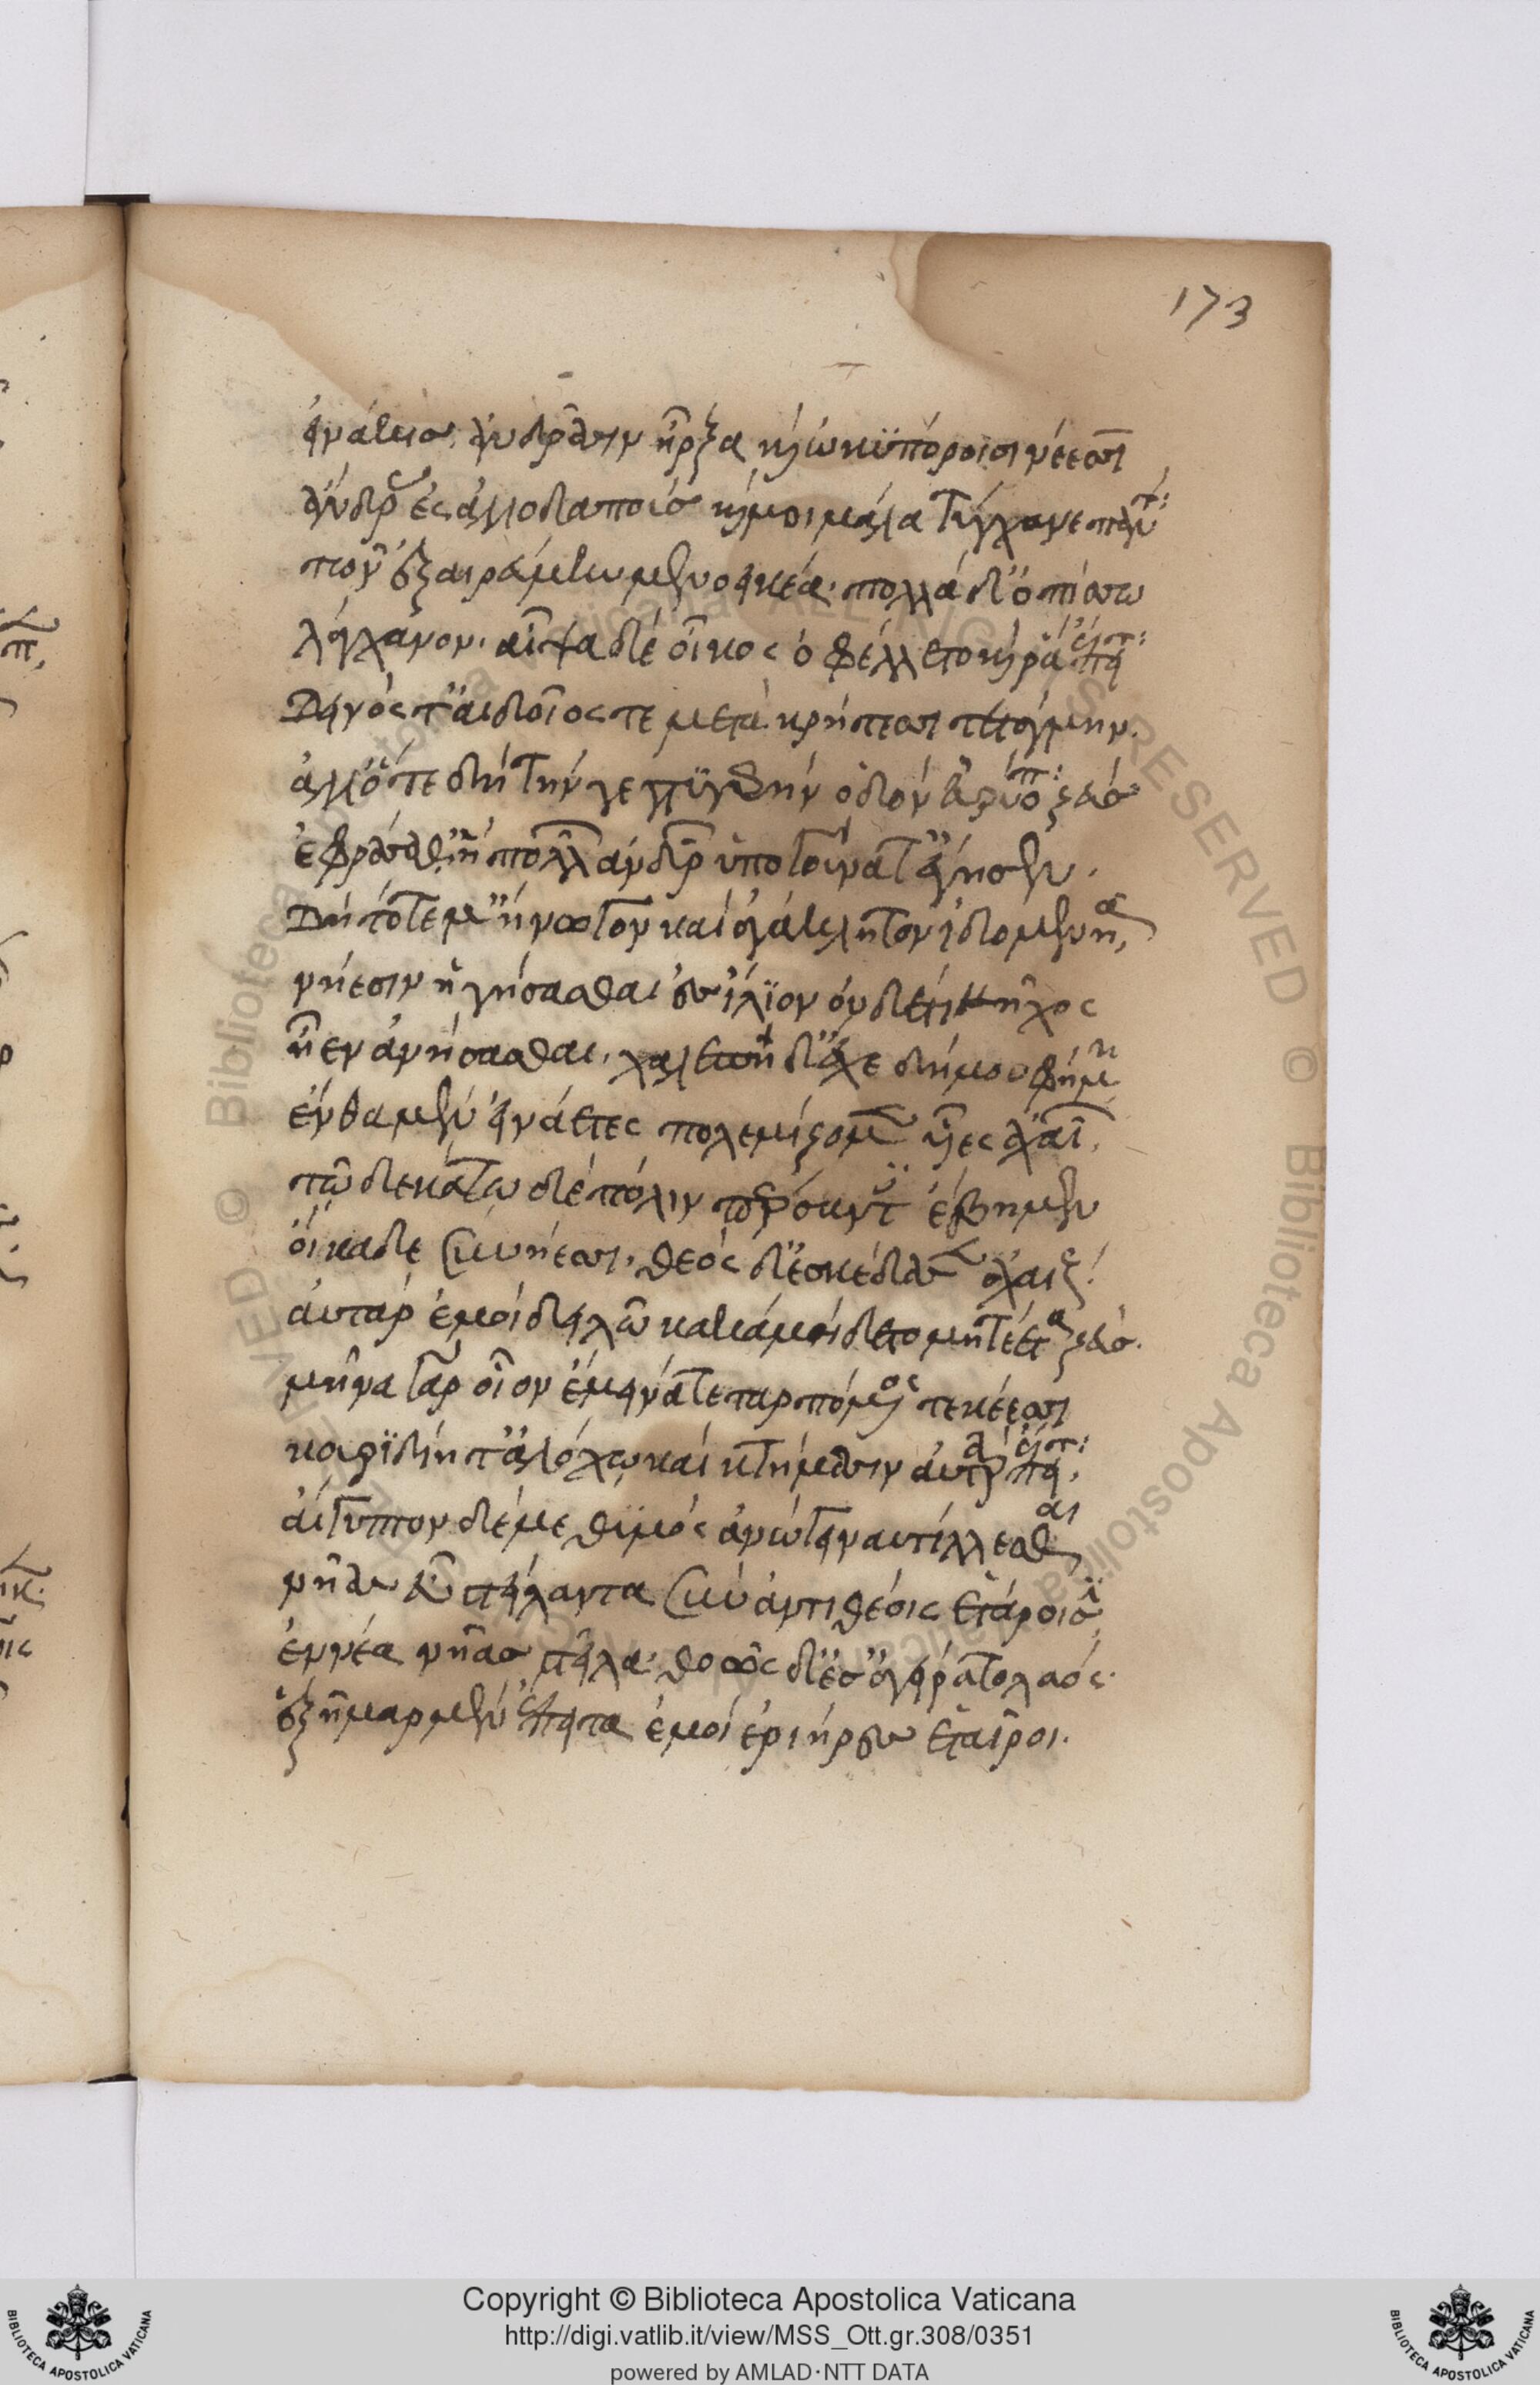 173
εἰνάκις ἀνδράσιν ἦρξα καὶ ὠκυπόροισι νέεσσι
ἄνδρας ἐς ἀλλοδαποὺς καί μοι μάλα τύγχανε πάντα
τῶν ἐξαιρεύμην μενοεικέα· πολλὰ δ' ὀπίσσω
λάγχανον· αἶψα δὲ οἶκος ὀφέλλετο καί ῥα ἔπειτα
δεινός τ' αἰδοῖός τε μετὰ κρήτεσσι τετύγμην.
ἀλλ' ὅτε δὴ τήν γε στυγερὴν ὁδὸν εὐρύοπα ζεὺς
ἐφράσαθ' ἣ πολλῶν ἀνδρῶν ὑπὸ γούνατ' ἔλυσεν.
δὴ τότε μ' ἤνωγον καὶ ἀγακλυτὸν ἰδομενῆα
νήεσιν ἡγήσασθαι ἐς ἴλιον οὐδέ τι μῆχος
ἦεν ἀνήνασθαι, χαλεπὴ δ' ἔχε δήμου φῆμις
ἔνθα μὲν εἰνάετες πολεμίζομεν υἷες ἀχαιῶν.
τῷ δεκάτῳ δὲ πόλιν πριάμου πέρσαντες ἔβημεν
οἴκαδε σὺν νήεσσι, θεὸς δ' ἐσκέδασεν ἀχαιούς.
αὐτὰρ ἐμοὶ δειλῷ κακὰ μήδετο μητίετα ζεύς.
μῆνα γὰρ οἶον ἔμεινα τεταρπόμενος τεκέεσσι
κουριδίῃ τ' ἀλόχῳ καὶ κτήμασιν αὐτὰρ ἔπειτα
αἴγυπτον δέ με θυμὸς ἀνώγει ναυτίλλεσθαι
νῆας εὖ στείλαντα σὺν ἀντιθέοις ἑτάροισι
ἐννέα νῆας στεῖλα· θοῶς δ' ἐσαγείρατο λαός.
ἑξῆμαρ μὲν ἔπειτα ἐμοὶ ἐρίηρες ἑταῖροι.
Copyright © Biblioteca Apostolica Vaticana
http://digi.vatlib.it/view/MSS_Ott.gr.308/0351
powered by AMLAD·NTT DATA